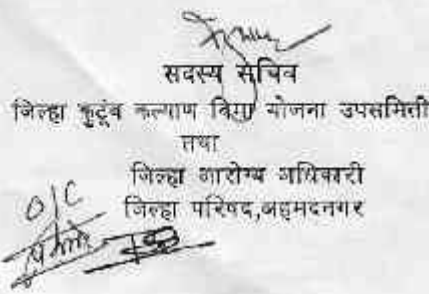 सदस्य सचिव
जिल्हा कुटूंब कल्याण विमा योजना उपसमिती
तथा
जिल्हा आरोग्य अधिकारी
O/C
जिल्हा परिषद,अहमदनगर